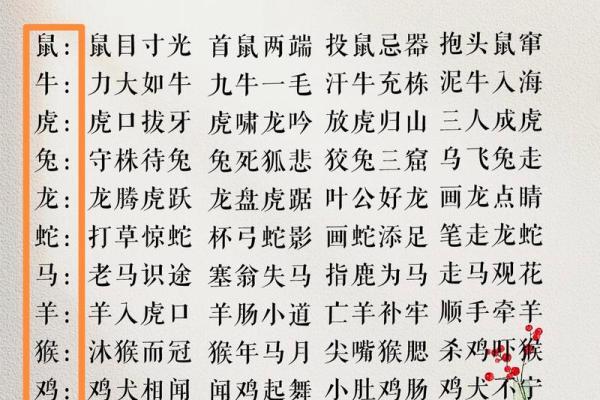 鼠：鼠目寸光 首鼠两端 投鼠忌器 抱头鼠窜
牛：力大如牛 九牛一毛 汗牛充栋 泥牛入海
虎：虎口拔牙 虎啸龙吟 放虎归山 三人成虎
兔：守株待兔 兔死狐悲 狡兔三窟 乌飞兔走
龙：龙腾虎跃 龙盘虎踞 叶公好龙 画龙点睛
蛇：打草惊蛇 杯弓蛇影 画蛇添足 笔走龙蛇
马：老马识途 塞翁失马 指鹿为马 走马观花
羊：羊入虎口 羊肠小道 亡羊补牢 顺手牵羊
猴：沐猴而冠 猴年马月 尖嘴猴腮 杀鸡吓猴
鸡：鸡犬相闻 闻鸡起舞 小肚鸡肠 鸡犬不宁